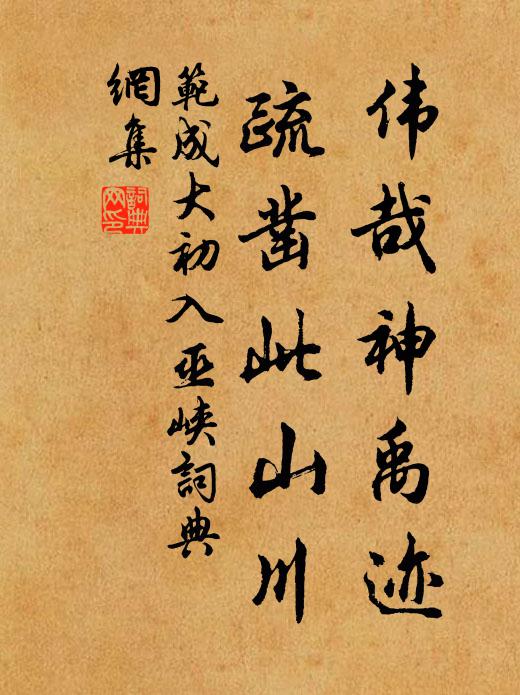 伟哉神禹迹
疏凿此山川
範成大初入巫峡詞典
網集
詞典网印